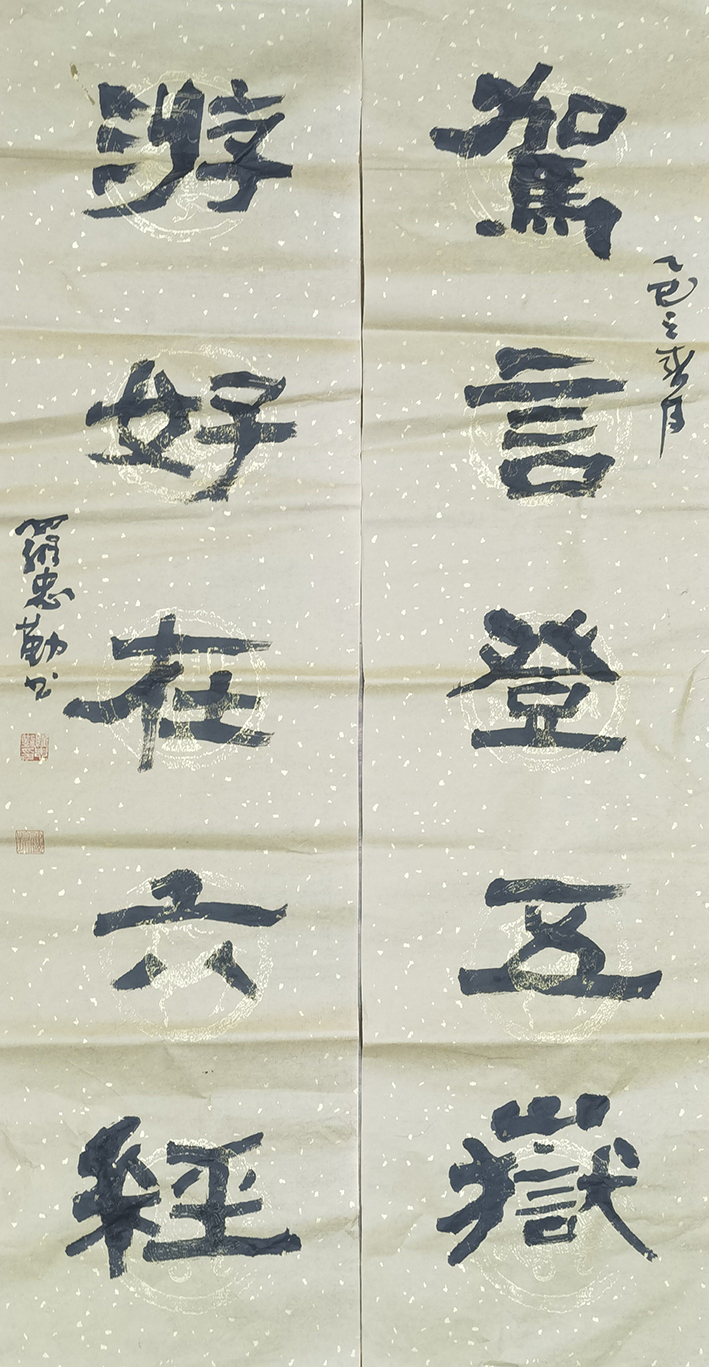 駕言登五嶽
乙巳之春月
游好在六經
羅忠勤书